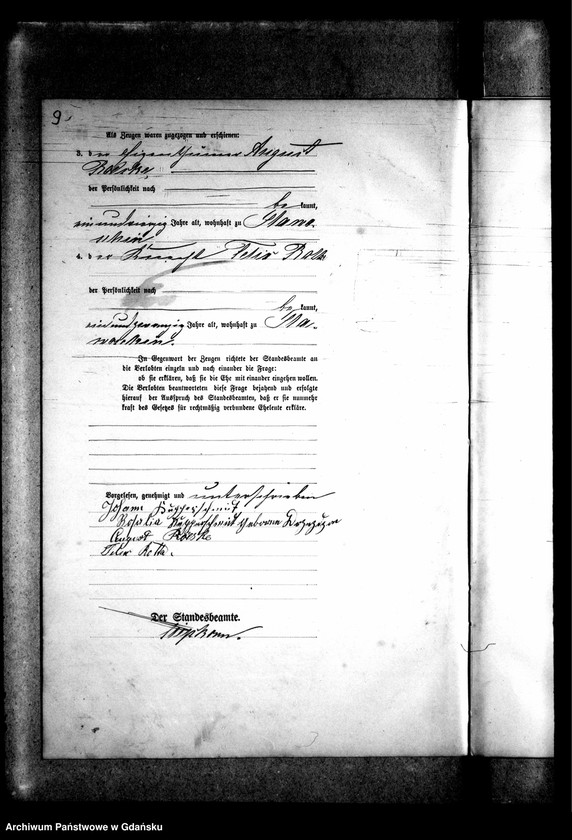 9.
Als Zeugen waren zugezogen und erschienen:
3. der Eigenthümer August
der Persönlichkeit nach
be kannt,
einundvierzig Jahre alt, wohnhaft zu
4. der Knecht Felix
der Persönlichkeit nach
be kannt,
einundzwanzig Jahre alt, wohnhaft zu
In Gegenwart der Zeugen richtete der Standesbeamte an
die Verlobten einzeln und nach einander die Frage:
ob sie erklären, daß sie die Ehe mit einander eingehen wollen.
Die Verlobten beantworteten diese Frage bejahend und erfolgte
hierauf der Ausspruch des Standesbeamten, daß er sie nunmehr
kraft des Gesetzes für rechtmäßig verbundene Eheleute erkläre.
Vorgelesen, genehmigt und unterschrieben
Johann Kupperschmit
Rosalia Kupperschmit geborene
August
Felix
Der Standesbeamte.
Archiwum Państwowe w Gdańsku